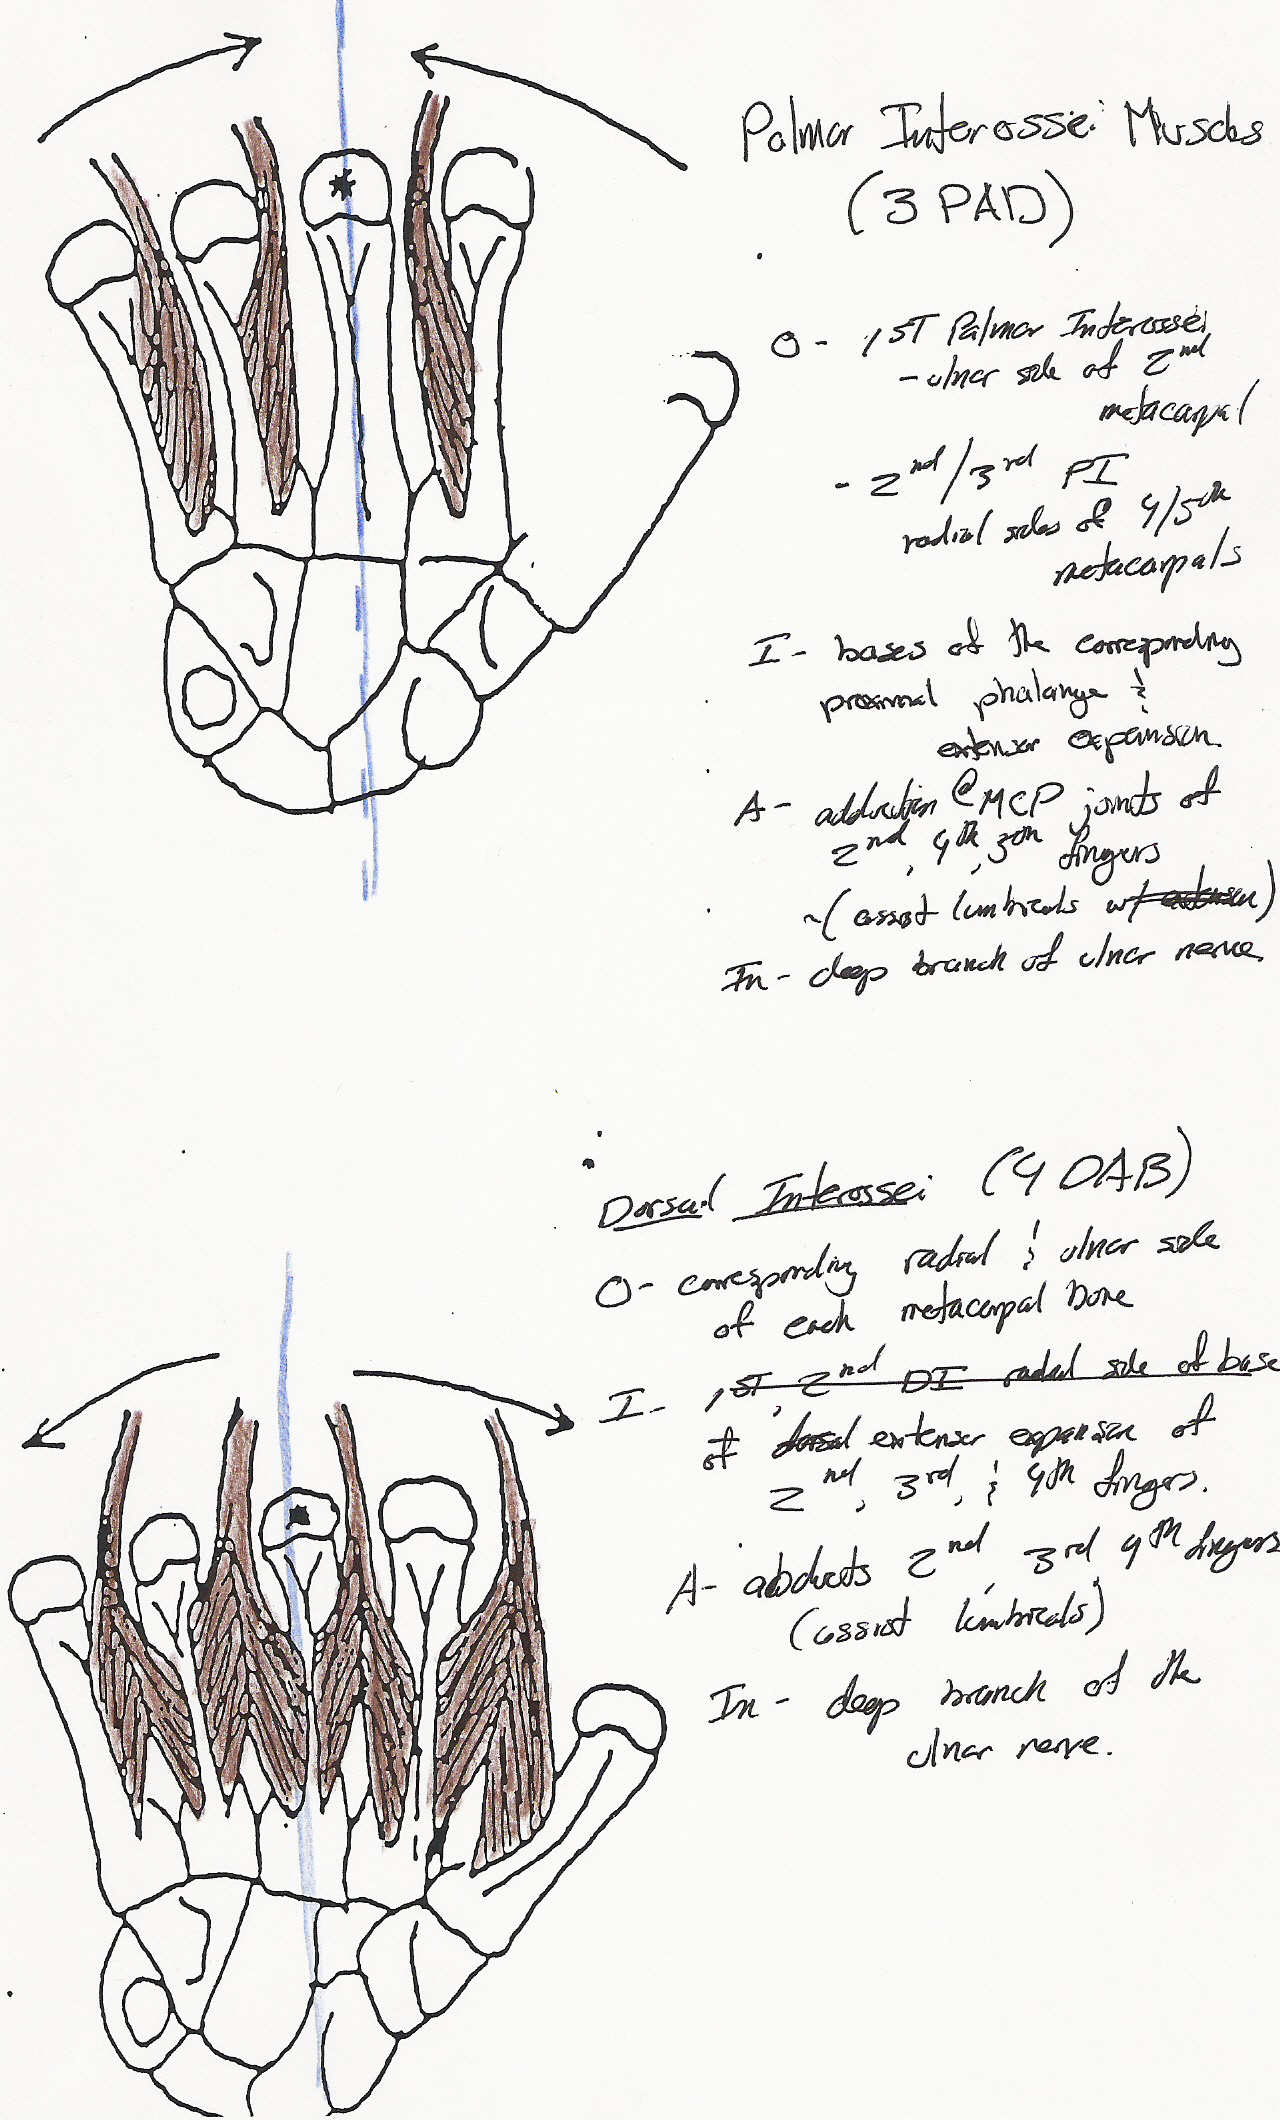 Palmar Interossei Muscles
(3 PAD)
O - 1ST Palmar Interossei
- ulnar side of 2nd
metacarpal
- 2nd/3rd PI
radial sides of 4/5th
metacarpals
I - bases of the corresponding
proximal phalange &
extensor expansion.
A - adduction @ MCP joints of
2nd, 4th, 5th fingers
~(assist lumbricals w/ extension)
In - deep branch of ulnar nerve.
Dorsal Interossei (4 DAB)
O - corresponding radial & ulnar side
of each metacarpal bone
I - 1ST, 2nd DI radial side of base
of dorsal extensor expansion of
2nd, 3rd, & 4th fingers.
A - abducts 2nd, 3rd 4th fingers
(assist lumbricals)
In - deep branch of the
ulnar nerve.